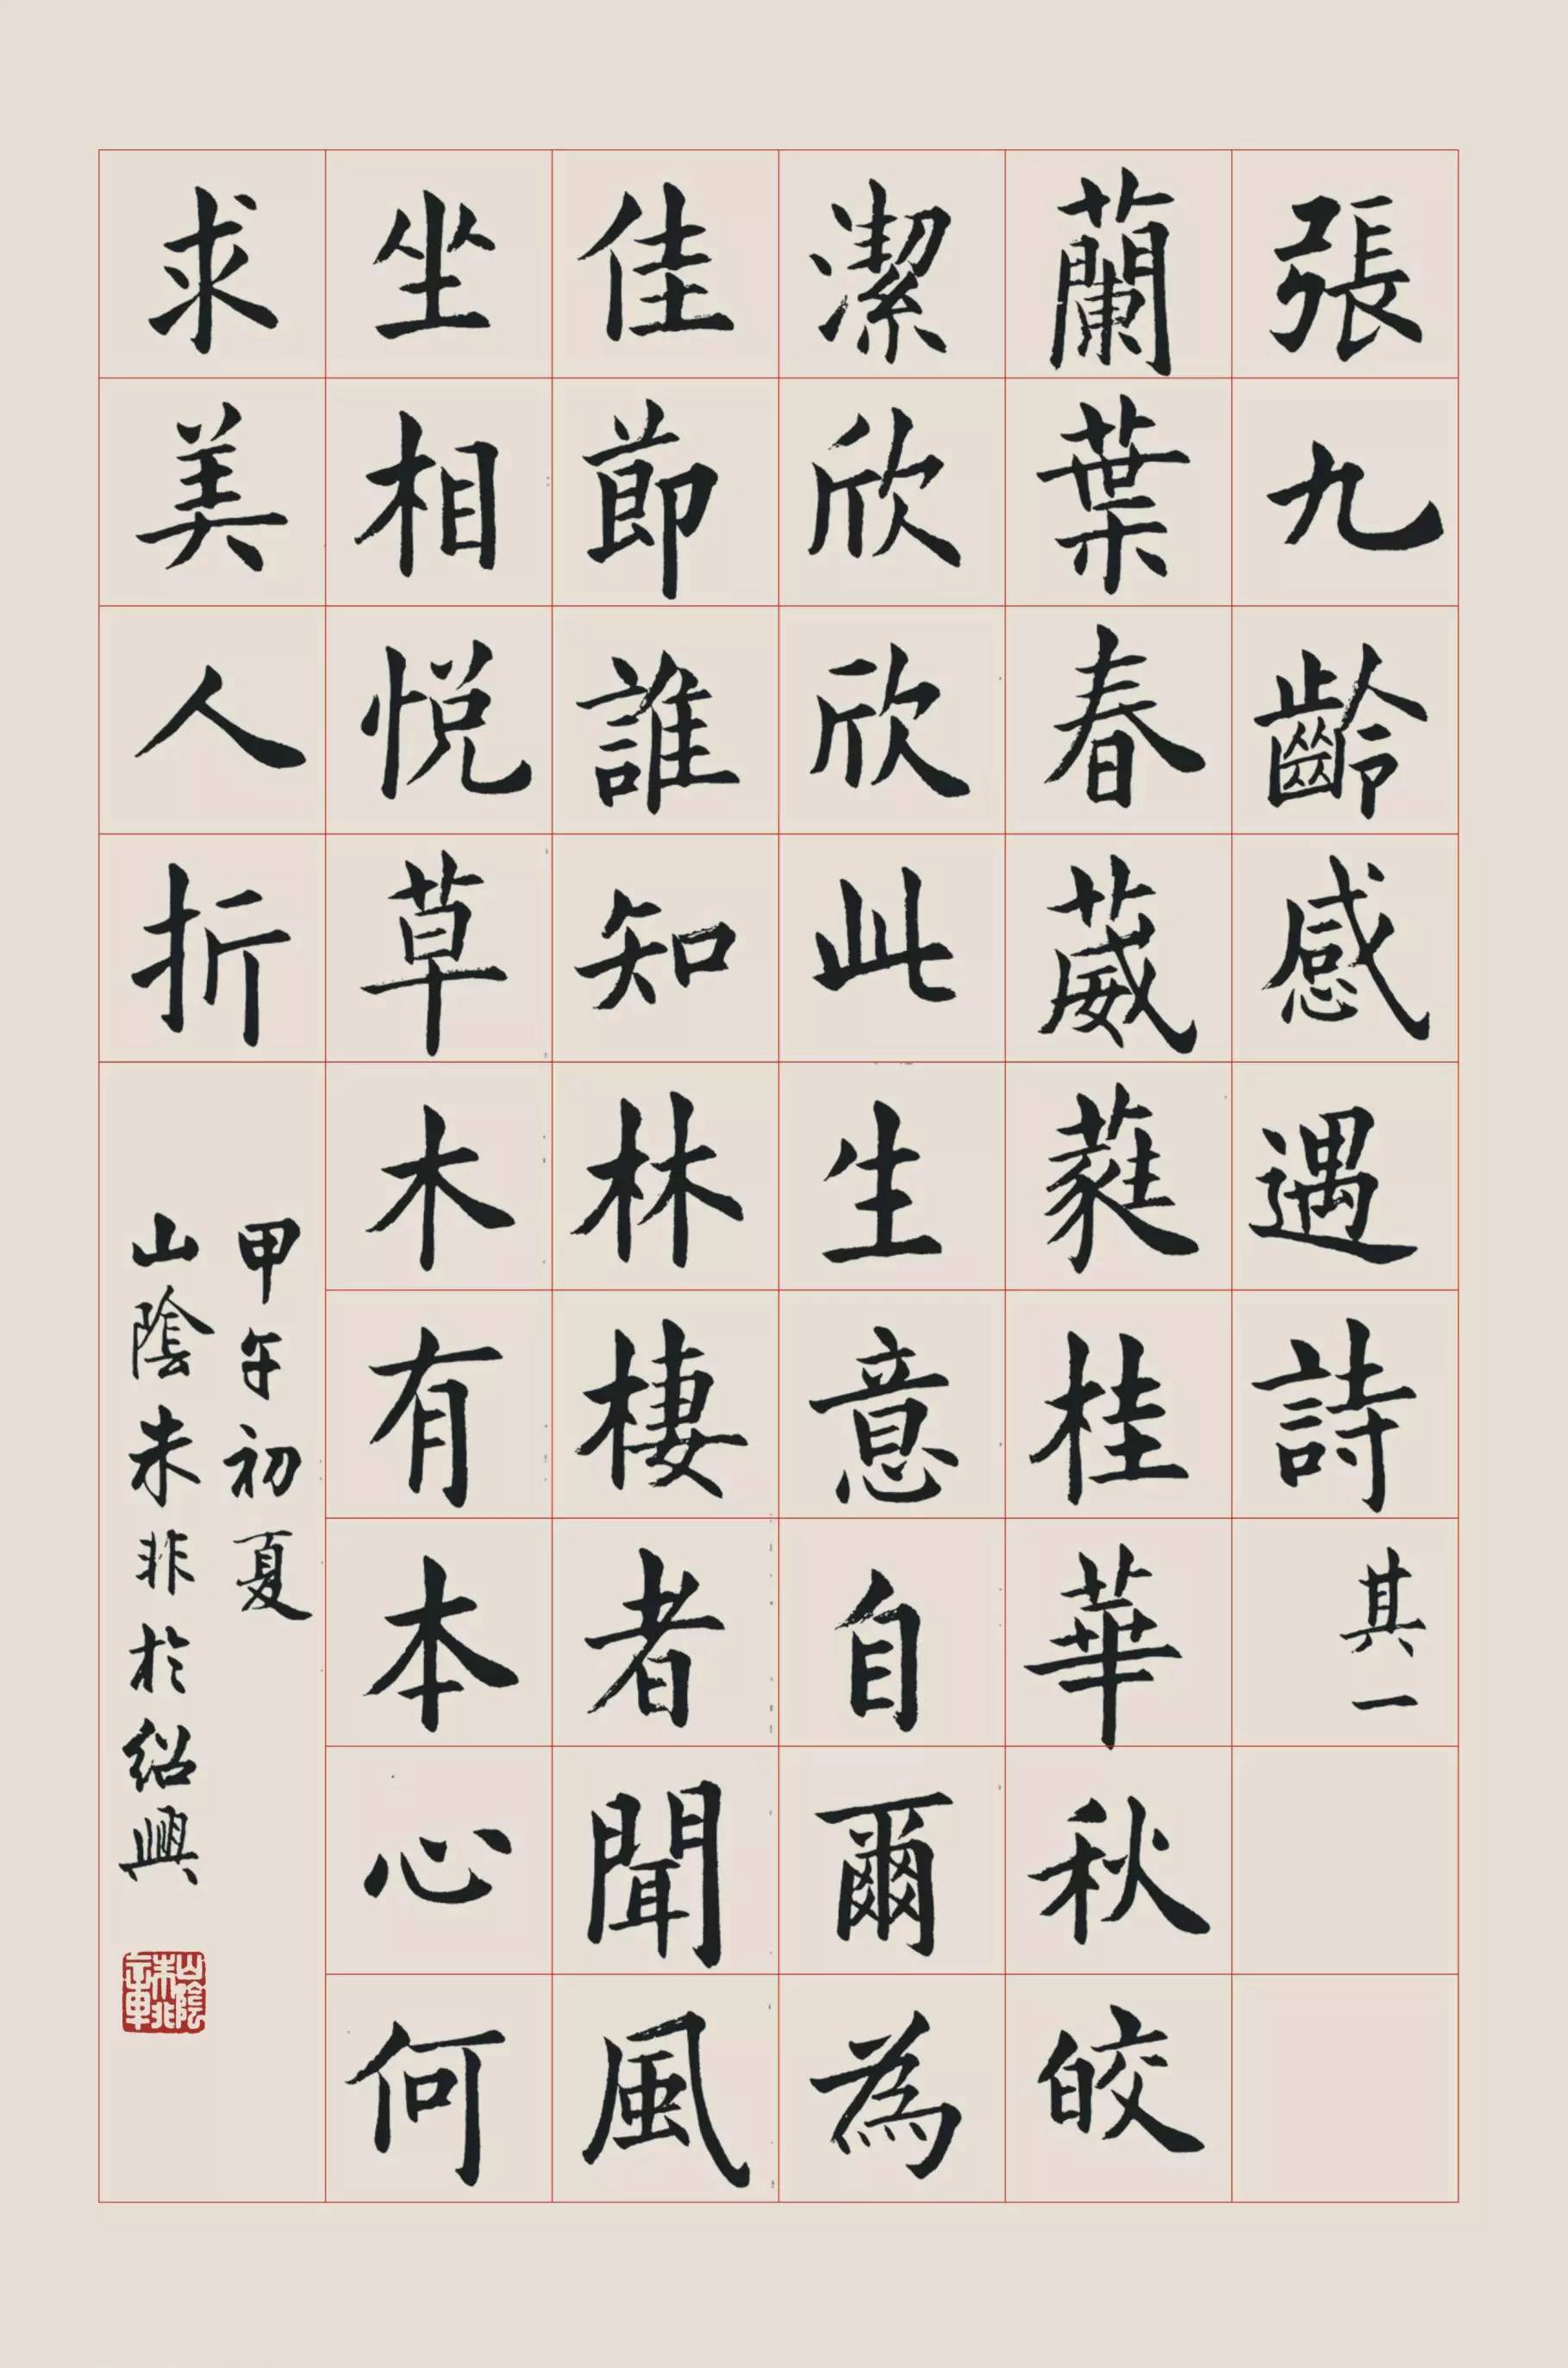 張九齡感遇詩其一
蘭葉春葳蕤桂華秋皎
潔欣欣此生意自爾為
佳節誰知林棲者聞風
坐相悅草木有本心何
求美人折
甲午初夏
山陰朱非於紹興